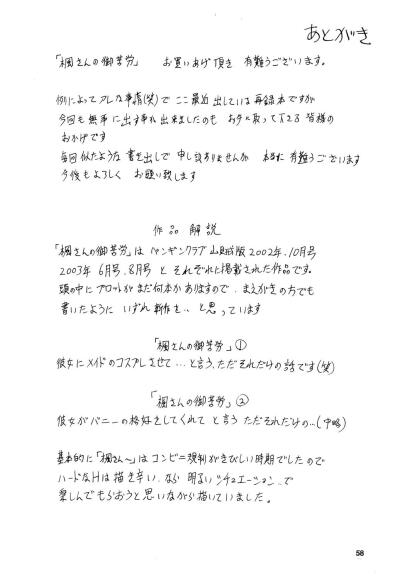 あとがき
「楓さんの御苦労」 お買いあげ頂き 有難うございます。
例によってアレな事情(笑)で ここ最近 出している 再録本ですが
今回も 無事に 出す事が 出来ましたのも お手に取って下さる 皆様の
おかげです
毎回似たような 書き出しで 申し訳ありませんが 本当に 有難うございます
今後もよろしく お願い致します
作品解説
「楓さんの御苦労」は ペンギンクラブ山賊版2002年.10月号
2003年 6月号.8月号 と それぞれ掲載された作品です。
頭の中に プロットが まだ何本か ありますので. まえがきの方でも
書いたように いずれ 新作を.. と思っています
「楓さんの御苦労」①
彼女にメイドのコスプレさせて…と言う.ただそれだけの話です(笑)
「楓さんの御苦労」②
彼女がバニーの格好をしてくれて と言う ただそれだけの…(中略)
基本的に「楓さん〜」は コンビニ規制がきびしい時期でしたので
ハードなHは 描き辛い.なら 明るい シチュエーション..で
楽しんでもらおうと思いながら描いていました。
58